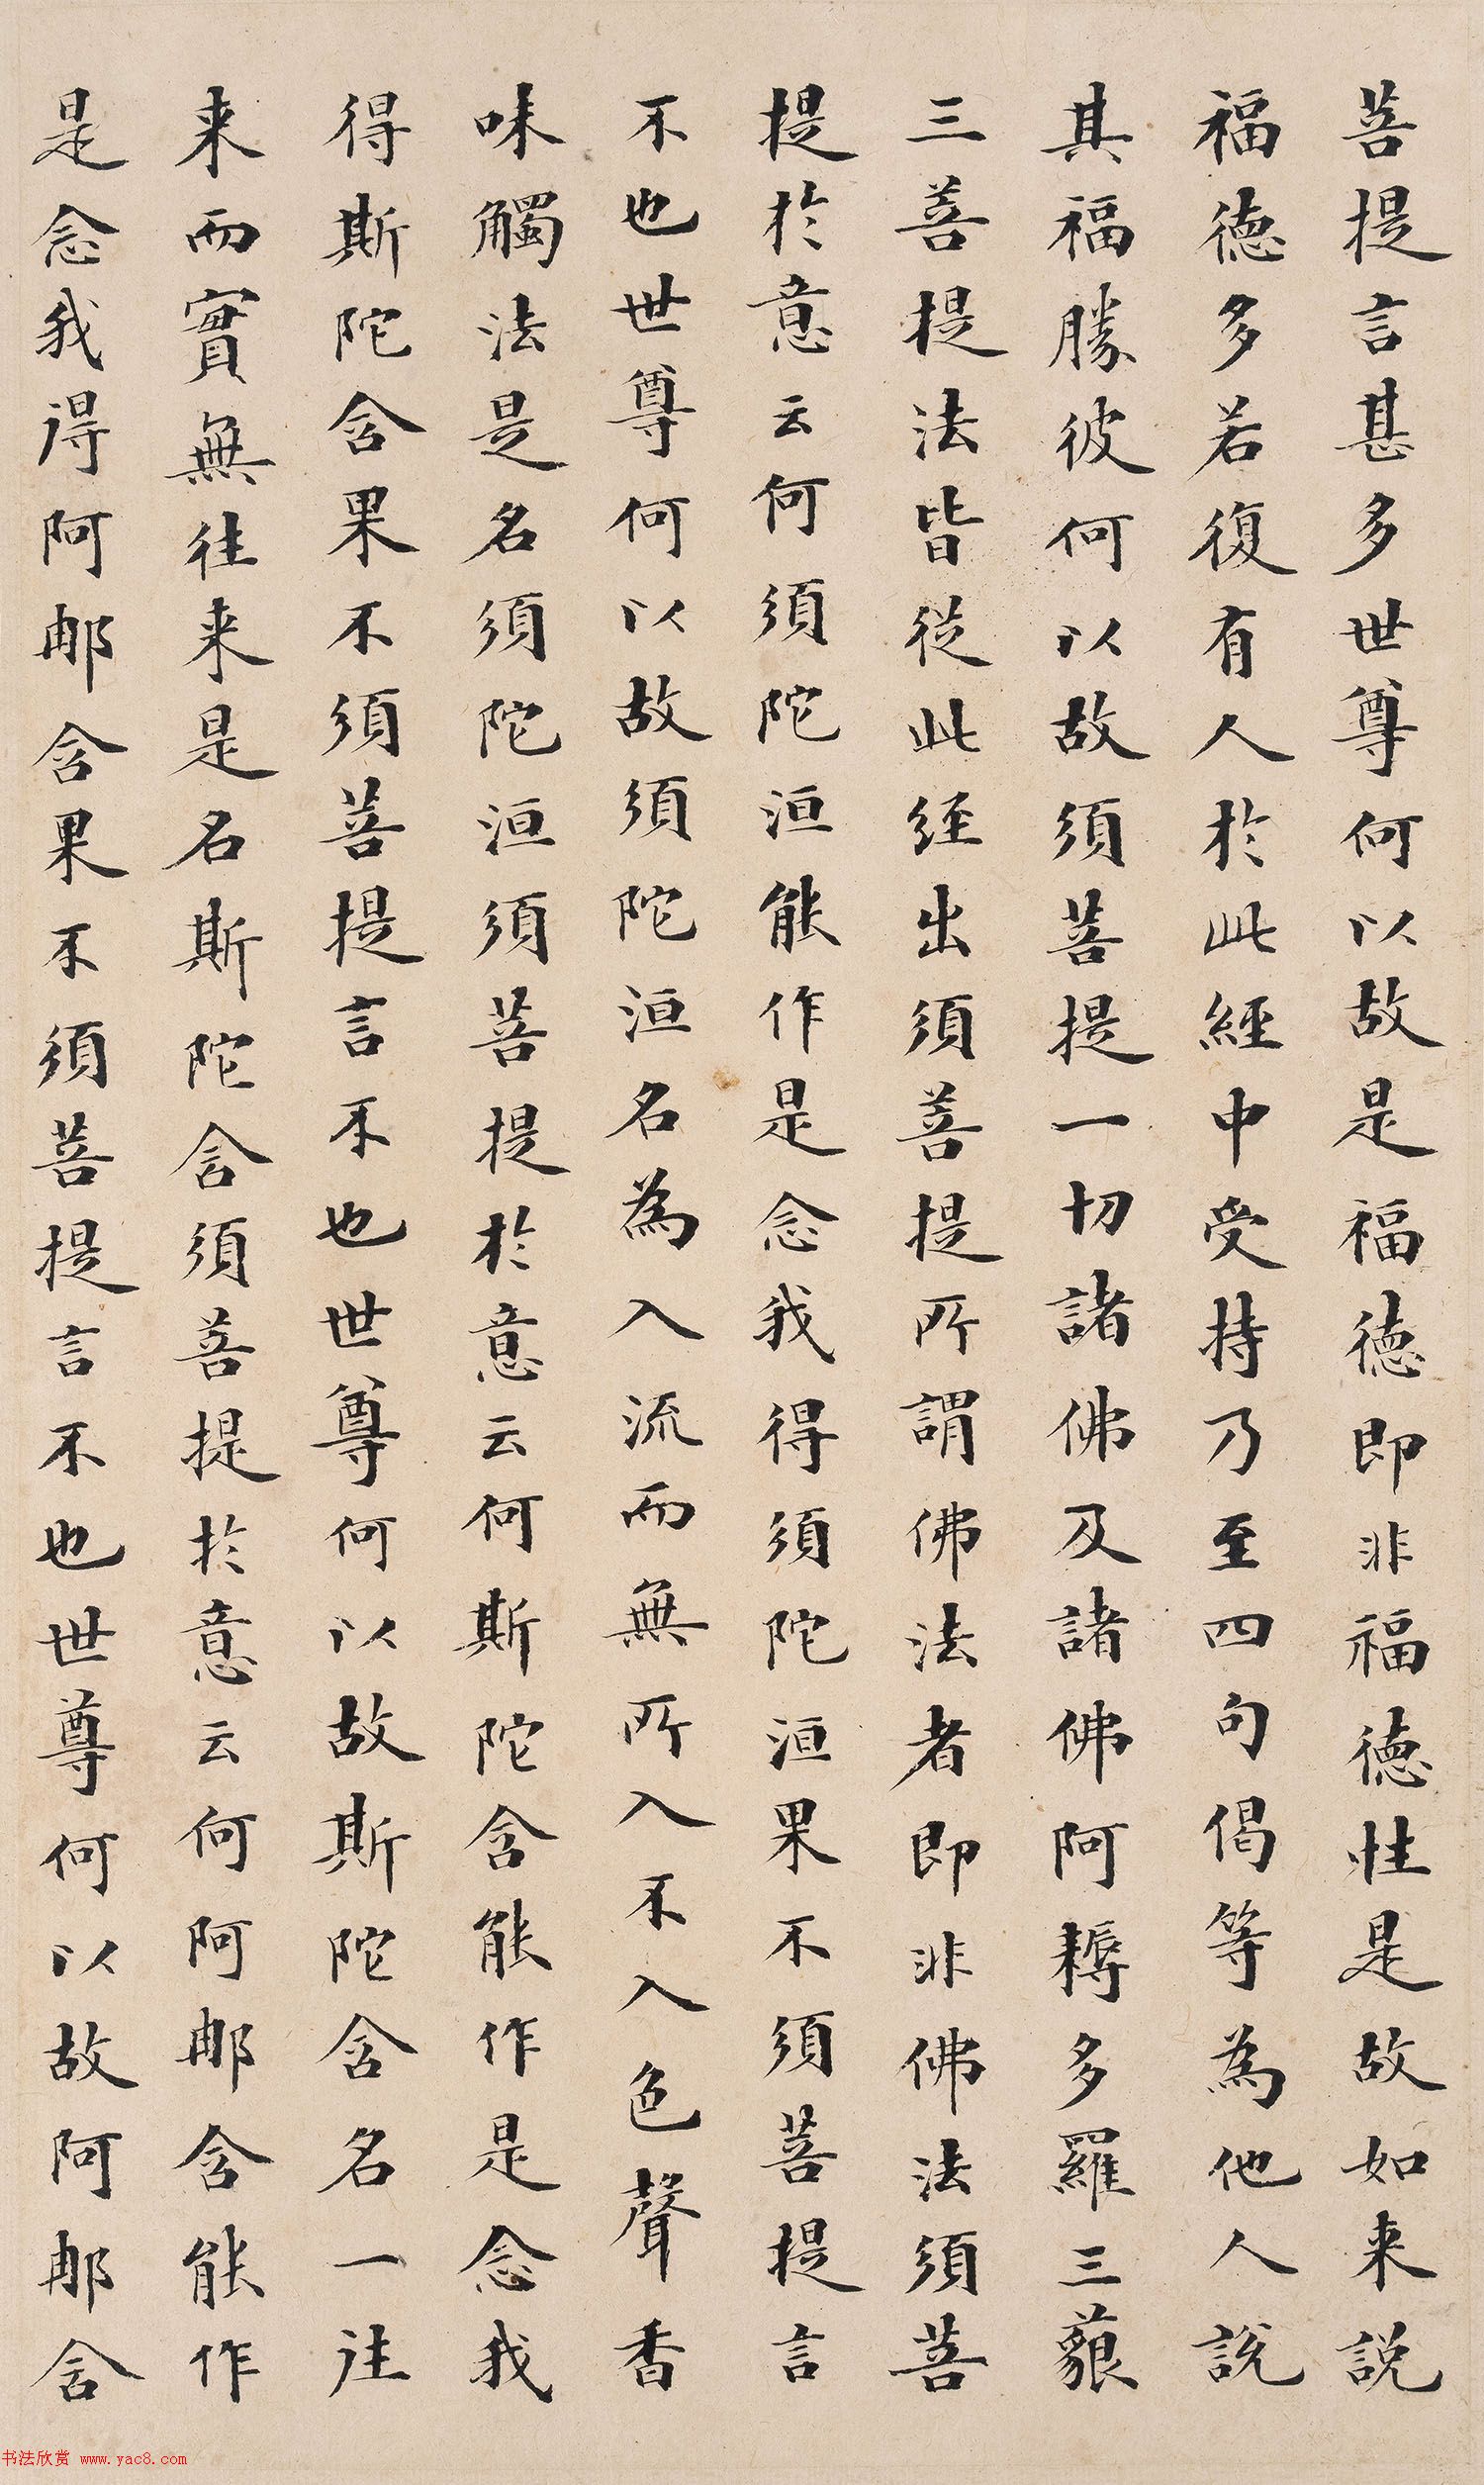 菩提言甚多世尊何以故是福德即非福德性是故如来説
福德多若復有人於此經中受持乃至四句偈等為他人説
其福勝彼何以故須菩提一切諸佛及諸佛阿耨多羅三藐
三菩提法皆從此経出須菩提所謂佛法者即非佛法須菩
提於意云何須陀洹能作是念我得須陀洹果不須菩提言
不也世尊何以故須陀洹名為入流而無所入不入色聲香
味觸法是名須陀洹須菩提於意云何斯陀含能作是念我
得斯陀含果不須菩提言不也世尊何以故斯陀含名一往
来而實無往来是名斯陀含須菩提於意云何阿那含能作
是念我得阿那含果不須菩提言不也世尊何以故阿那含
书法欣赏 www.yac8.com